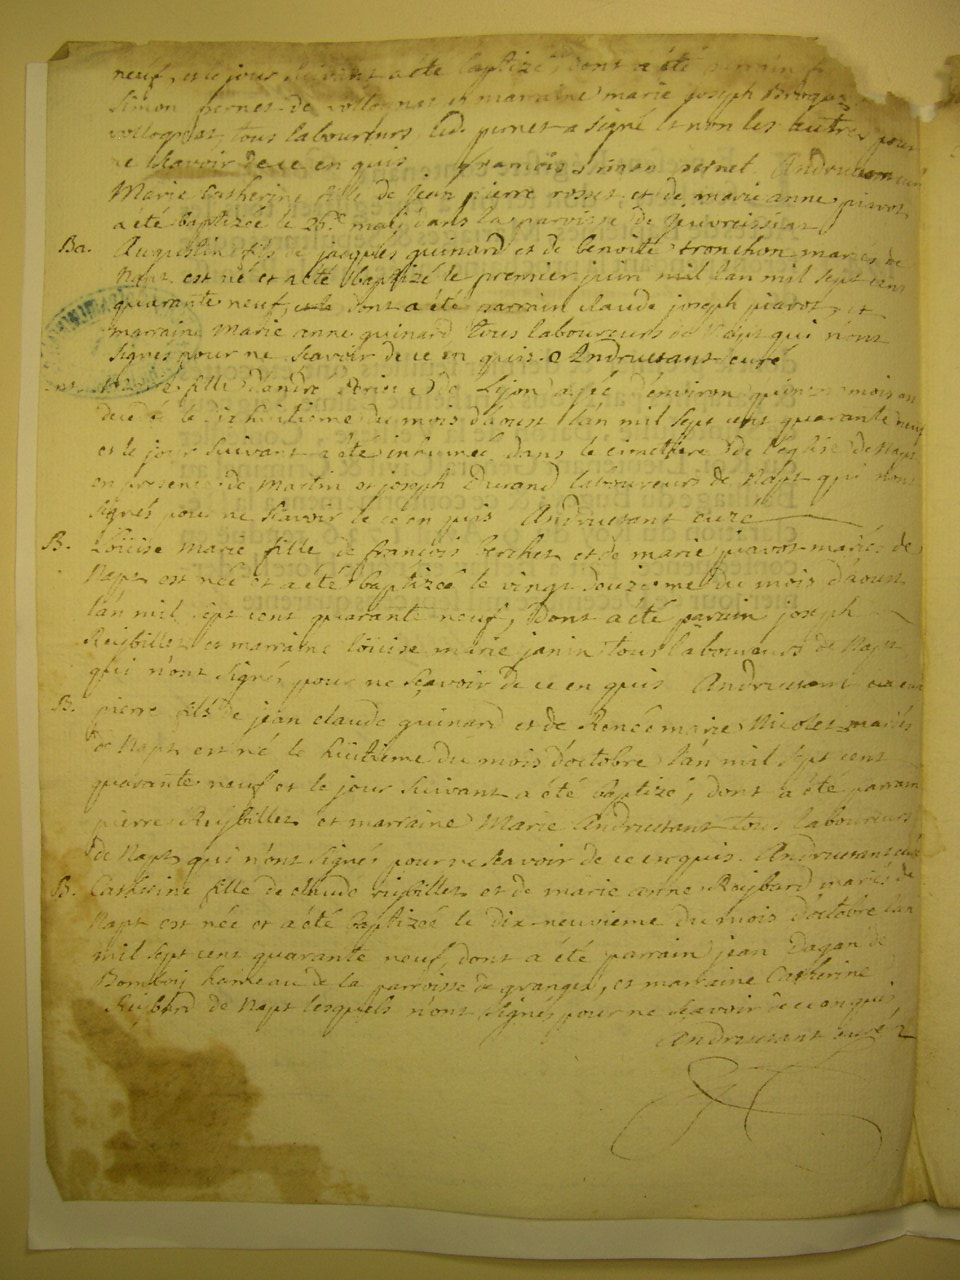 neuf, et le jour suivant a eté baptizé, dont a été parrain
Simon pernet de vollognat et marraine marie joseph
vollognat tous laboureurs led. pernet a signé et non les autres pour
ne sçavoir de ce en quis françois simon pernet Andruetan curé
Marie Catherine fille de Jean pierre rosset et de marie anne piavot
a été baptizée le 26e may dans la parroisse de
Ba. Augustin fils de jacques guinard et de benoitte tronchon mariés de
Napt est né et a été baptizé le premier juin mil l'an mil sept cens
quarante neuf, dont a été parrain claude joseph piavot, et
marraine Marie anne guinard tous laboureurs de Napt qui n'ont
signés pour ne sçavoir de ce en quis Andruetant curé
fille d'andré de Lyon agée d'environ quinze mois est
decedée le dix huitieme du mois d'aoust l'an mil sept cent quarante neuf
et le jour suivant a été inhumée dans le cimetiere de l'eglise de Napt
en presence de Martin et joseph Durand laboureurs de Napt qui n'ont
signés pour ne sçavoir de ce en quis Andruetant curé
B. Loüise Marie fille de françois berchet et de marie piavot mariés de
Napt est née et a été baptizeé le vingt douzieme du mois d'aoust
l'an mil sept cent quarante neuf, dont a été parrain joseph
Reybillet et marraine loüise marie janin tous laboureurs de Napt
qui n'ont signés pour ne sçavoir de ce en quis Andruetant curé
B. pierre fils de jean claude guinard et de Renée marie Nicolet mariés
de Napt est né le huitieme du mois d'octobre l'an mil sept cent
quarante neuf et le jour suivant a été baptizé, dont a été parrain
pierre Reybillet et marraine Marie Andruetant tous laboureurs
de Napt qui n'ont signés pour ne sçavoir de ce en quis. Andruetant curé
B. Catherine fille de claude reybillet et de marie anne Reybard mariés de
Napt est née et a été baptizeé le dix-neuvieme du mois d'octobre l'an
mil sept cent quarante neuf, dont a été parrain jean Dagan de
hameau de la parroisse de granges, et marraine Catherine
Reybard de Napt lesquels n'ont signés pour ne sçavoir de ce en quis,
Andruetant curé